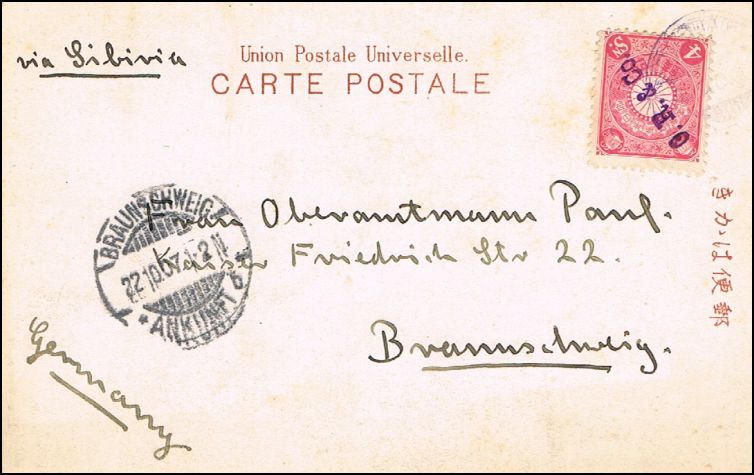 via Sibiria
Union Postale Universelle.
CARTE POSTALE
4 Sn
きかは便郵
BRAUNSCHWEIG
22.10.07. 1-2 N
* ANKUNFT
Frau Oberamtmann Paul.
Kaiser Friedrich Str 22.
Braunschweig.
Germany